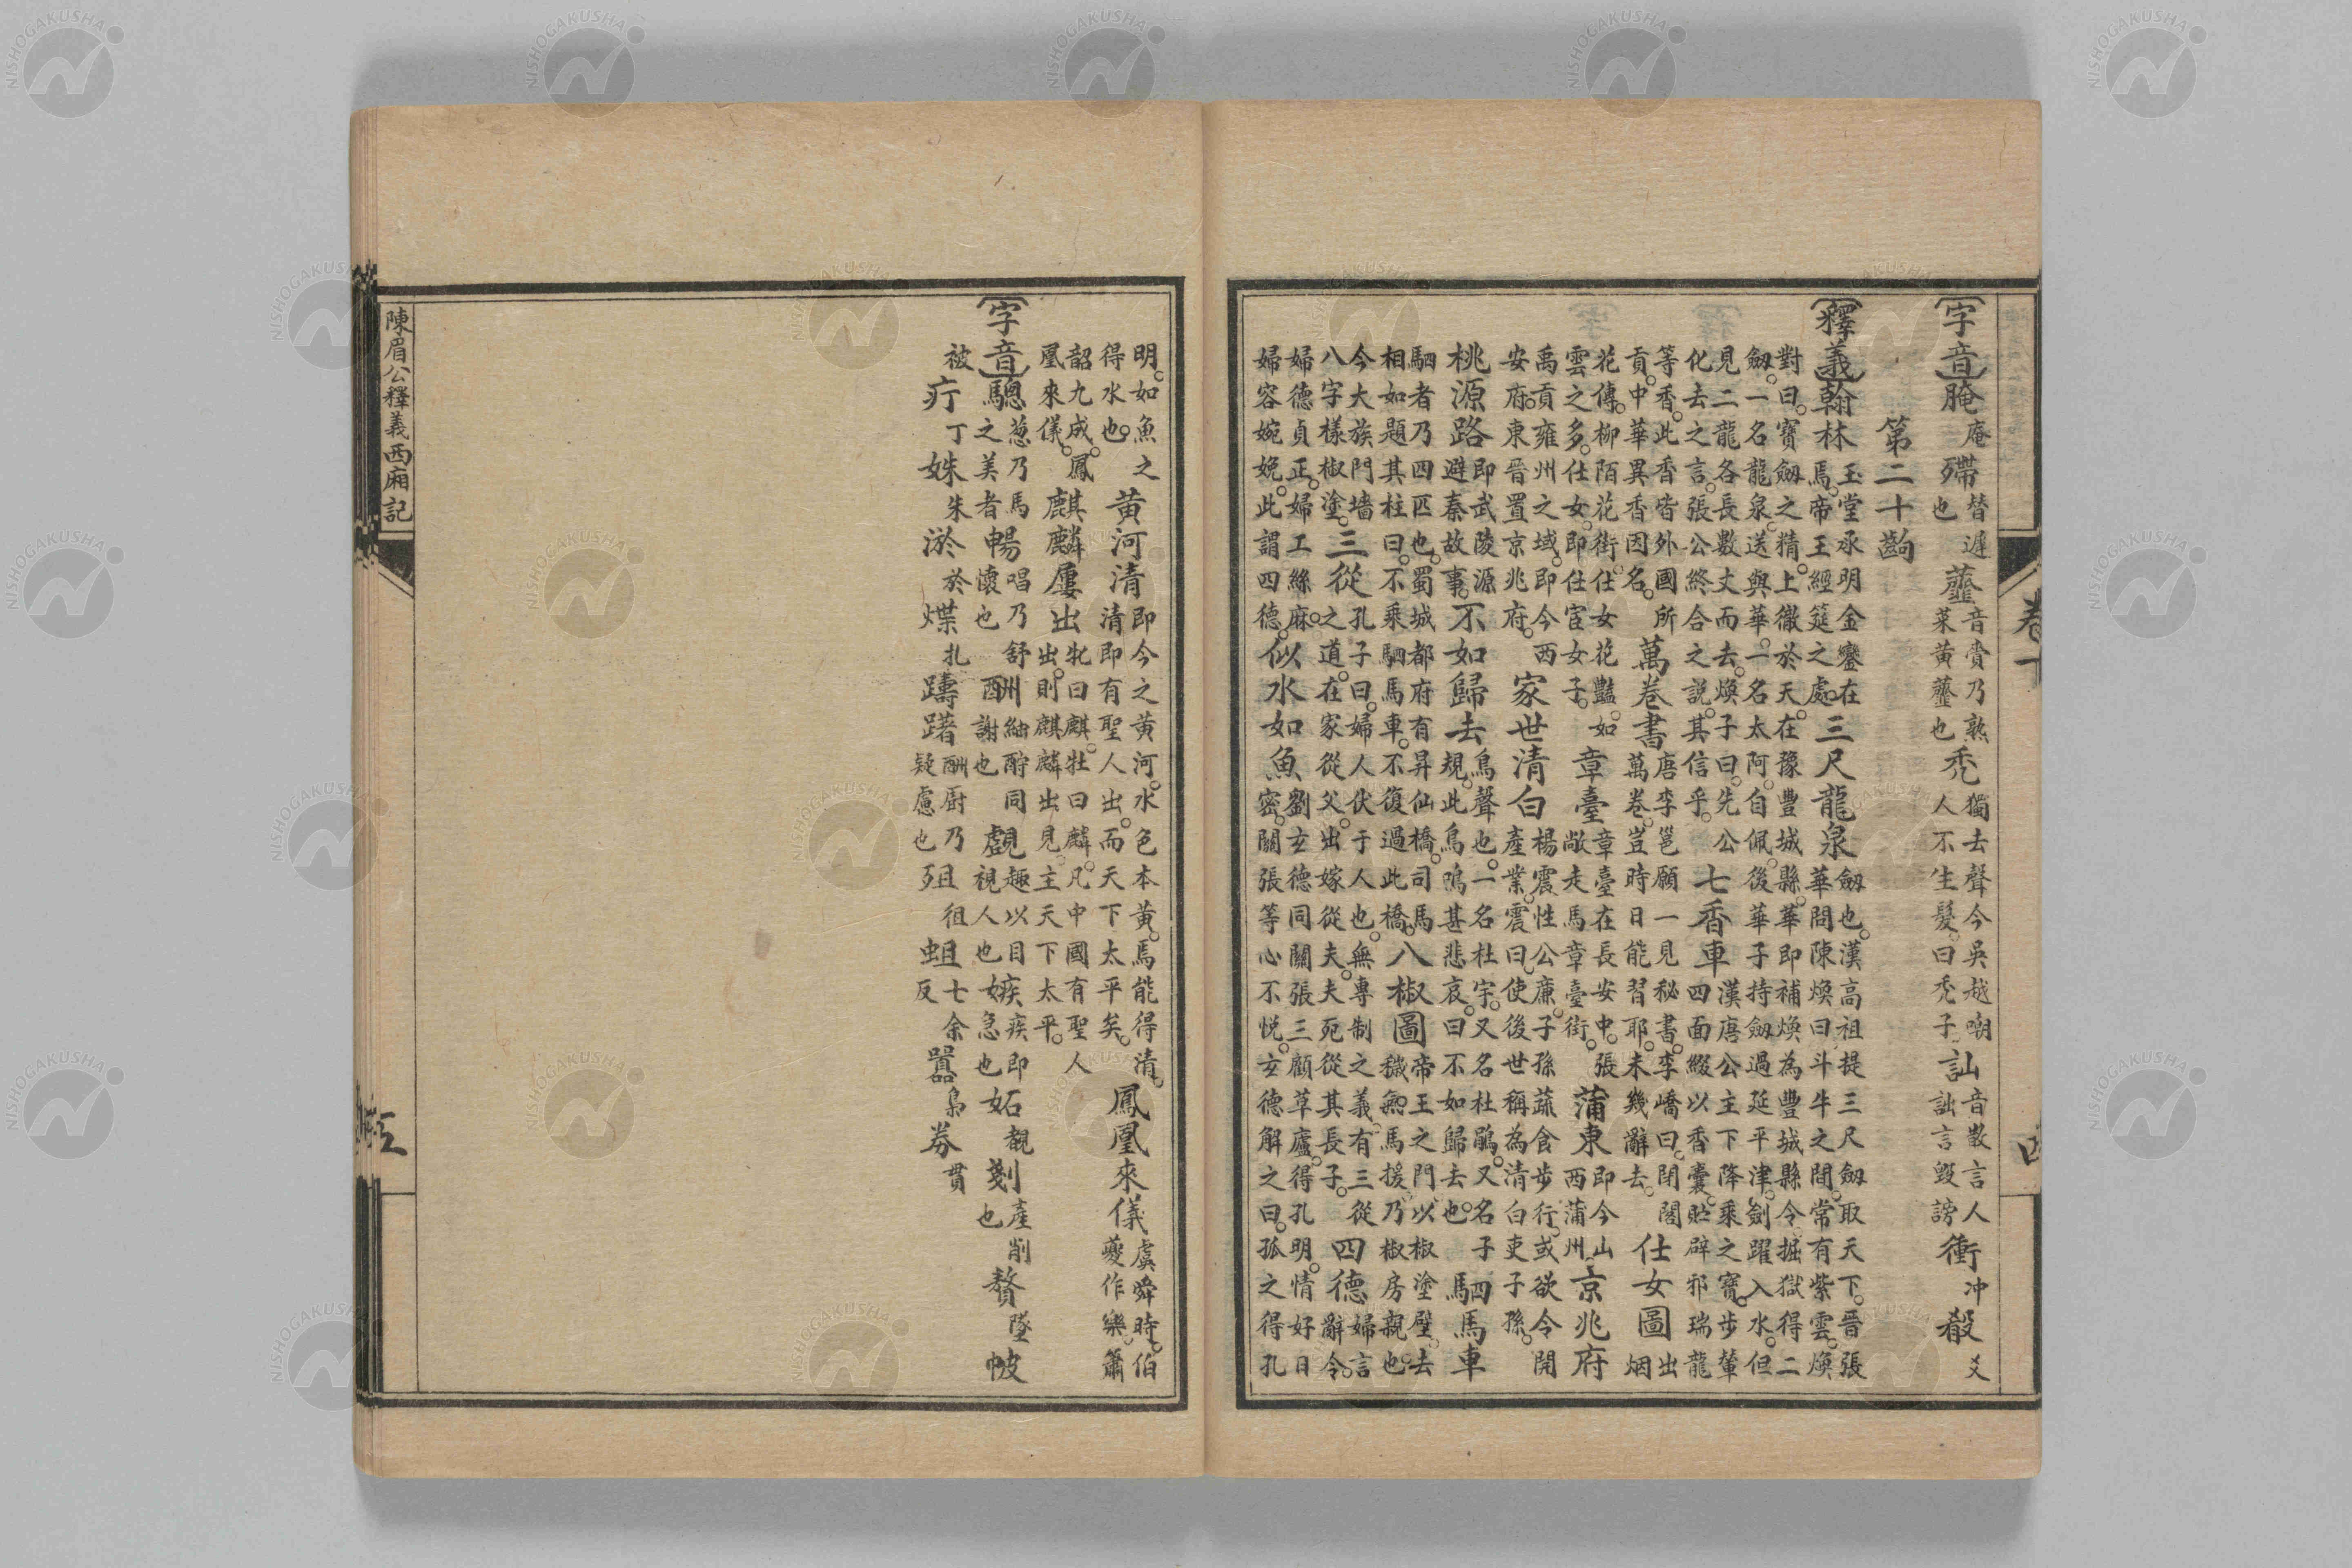 字音 腌庵 殢替遅也 虀音賫乃熟菜黄虀也 禿獨去聲今吳越嘲人不生髮曰禿子 訕音散言人訕言毀謗 衝冲 殺爻
第二十齣
釋義 翰林玉堂承明金鑾在馬帝王經筵之處 三尺龍泉劔也漢高祖提三尺劔取天下晋張華問陳煥曰斗牛之間常有紫雲煥
對曰寶劔之精上徹於天在豫豐城縣華即補煥為豐城縣令掘獄得二劔一名龍泉送與華一名太阿自佩後華子持劔過延平津劍躍入水但
見二龍各長數丈而去煥子曰先公化去之言張公終合之説其信乎 七香車漢唐公主下降乘之寶步輦四面綴以香囊貯辟邪瑞龍
等香此香皆外國所貢中華異香因名 萬卷書唐李邕願一見秘書李嶠曰閉閣萬卷豈時日能習耶未幾辭去 仕女圖出烟
花傳柳陌花街仕女花豔如雲之多仕女即仕宦女子 章臺章臺在長安中張敞走馬章臺街 蒲東即今山西蒲州 京兆府
禹貢雍州之域即今西安府東晉置京兆府 家世清白楊震性公廉子孫蔬食步行或欲令開產業震曰使後世稱為清白吏子孫
桃源路即武陵源避秦故事 不如歸去鳥聲也一名杜宇又名杜鵑又名子規此鳥鳴甚悲哀曰不如歸去也 駟馬車
駟者乃四匹也蜀城都府有昇仙橋司馬相如題其柱曰不乘駟馬車不復過此橋 八椒圖帝王之門以椒塗壁去穢無馬援乃椒房親也
今大族門墻八字樣椒塗 三從孔子曰婦人伏于人也無專制之義有三從之道在家從父出嫁從夫夫死從其長子 四德婦言辭令
婦德貞正婦工絲麻婦容婉娩此謂四德 似水如魚劉玄德同關張三顧草廬得孔明情好日密關張等心不悦玄德解之曰孤之得孔
卷十
四
明如魚之得水也 黄河清即今之黄河水色本黄馬能得清清即有聖人出而天下太平矣 鳳凰來儀虞舜時伯夔作樂簫
韶九成鳳凰來儀 麒麟屢出牝曰麒牡曰麟凡中國有聖人出則麒麟出見主天下太平
字音 驄葱乃馬之美者 暢唱乃舒懷也 酬紬酧同酉謝也 覷趣以目視人也 嫉疾即急也 妬覩 剗產削也 贅墜 帔
被 疔丁 姝朱 淤於 煠扎 躊躇酬厨乃疑慮也 殂徂 蛆七余反 嚣梟 劵貫
陳眉公釋義西廂記
五